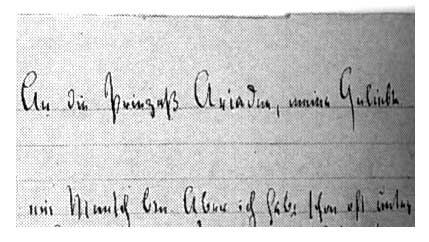 An die Prinzeß Ariadne, meine Geliebte
ein Mensch bin. Aber ich habe schon oft unter